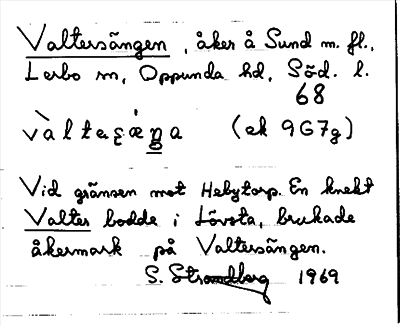 Valtersängen, åker å Sund m. fl.,
Lerbo sn, Oppunda hd, Söd. l.
68
vàltesę́ŋa (ek 9G7g)
Vid gränsen mot Hebytorp. En knekt
Valter bodde i Lövsta, brukade
åkermark på Valtersängen.
S. Strandberg 1969